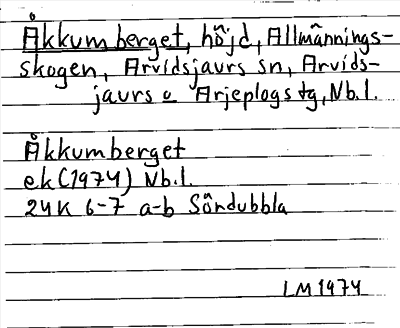 Åkkumberget, höjd, Allmännings-
skogen, Arvidsjaurs sn, Arvids-
jaurs o Arjeplogs tg, Nb.l.
Åkkumberget
ek (1974) Nb.l.
24K 6-7 a-b Sördubbla
LM 1974